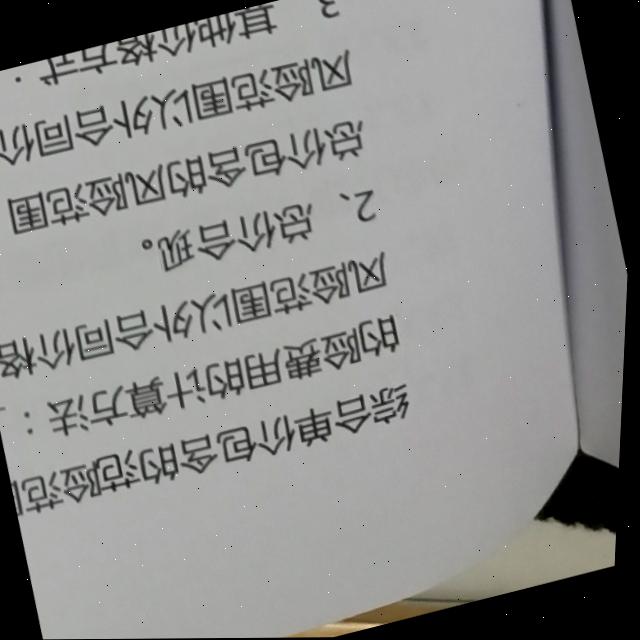 综合单价包含的范险范
的险费用的计算方法：
风险范围以外合同价格
2、总价合现。
总价包含的风险范围
风险范围以外合同价
3 其他价格方式：